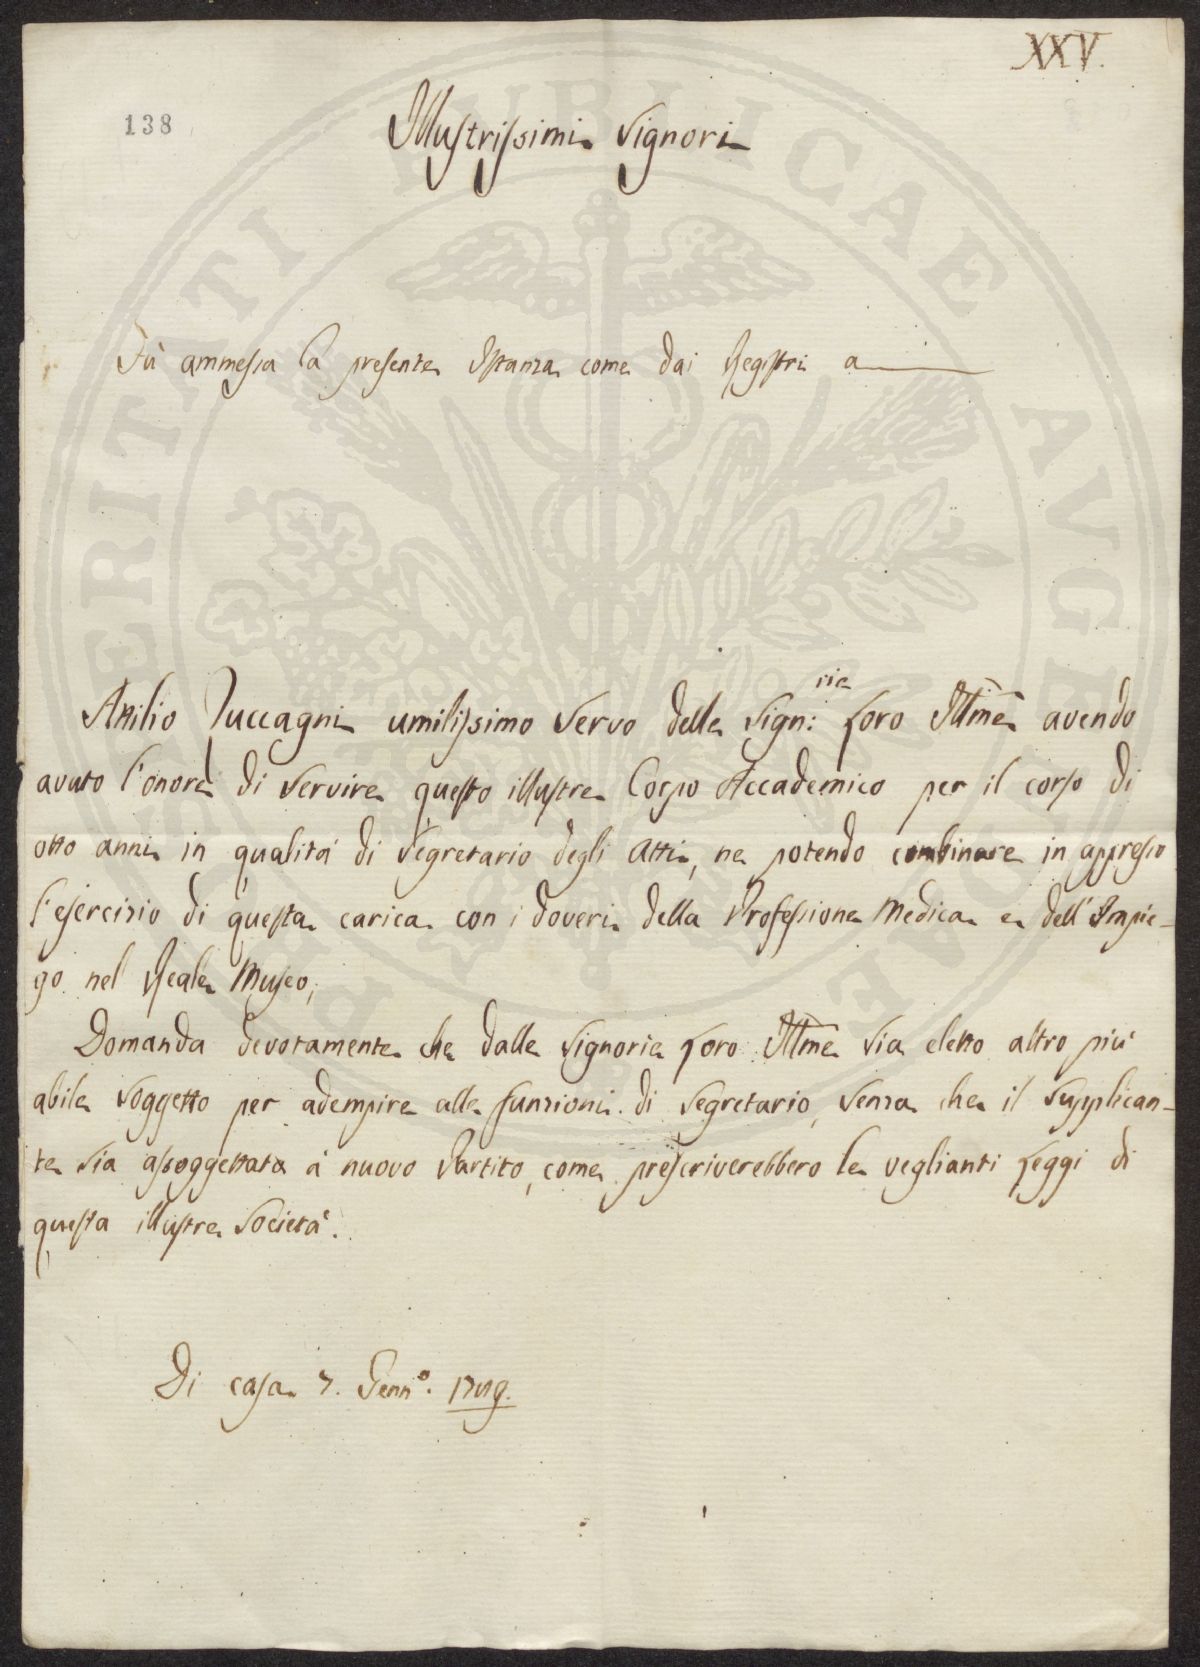 XXV.
138
Illustrissimi Signori
Fù ammessa la presente Istanza come dai Registri a
Attilio Zuccagni umilissimo servo delle Sign:rie Loro Illme avendo
avuto l'onore di servire questo illustre Corpo Accademico per il corso di
otto anni in qualità di Segretario degli Atti, ne potendo combinare in appresso
l'esercizio di questa carica con i doveri della Professione Medica e dell'Impie-
go nel Reale Museo;
Domanda devotamente che dalle Signorie Loro Illme sia eletto altro più
abile soggetto per adempire alle funzioni di Segretario, senza che il supplican-
te sia assoggettato à nuovo Partito, come prescriverebbero le veglianti Leggi di
questa illustre Società.
Di casa 7. Genn.o
PROSPERITATI PUBLICAE AVGENDAE